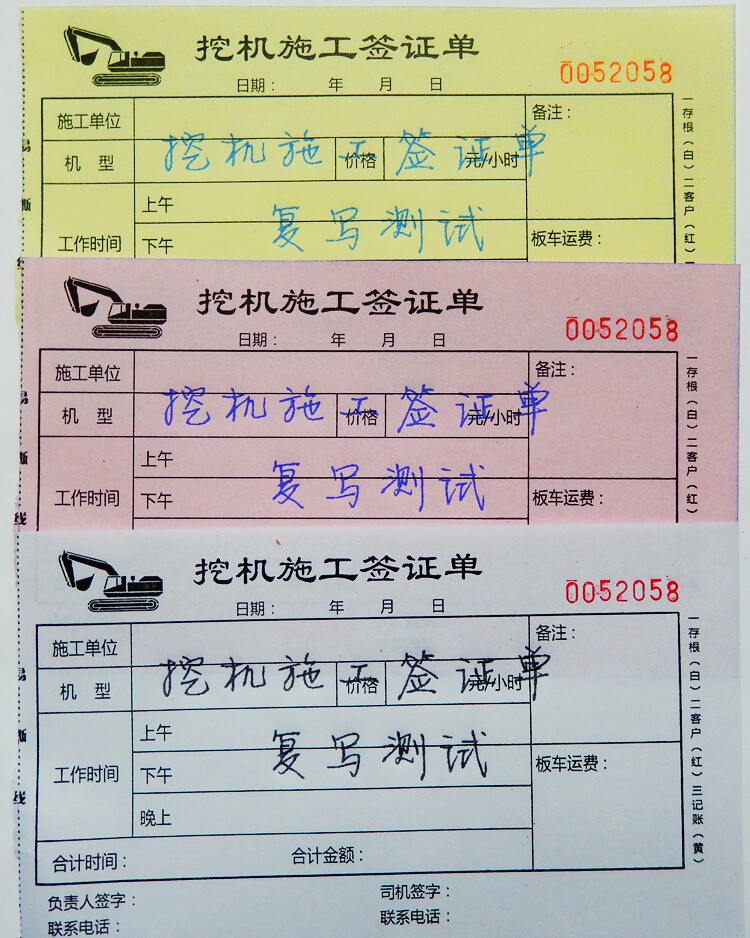 挖机施工签证单
0052058
日期： 年 月 日
施工单位 备注：
挖机施工签证单
机 型 价格 元/小时
上午
复写测试
工作时间 下午 板车运费：
一存根（白）二客户（红）二
挖机施工签证单
0052058
日期： 年 月 日
施工单位 备注：
挖机施工签证单
机 型 价格 元/小时
上午
复写测试
工作时间 下午 板车运费：
一存根（白）二客户（红）
挖机施工签证单
0052058
日期： 年 月 日
施工单位 备注：
挖机施工签证单
机 型 价格 元/小时
上午
复写测试
工作时间 下午 板车运费：
晚上
合计时间： 合计金额：
负责人签字： 司机签字：
联系电话： 联系电话：
一存根（白）二客户（红）三记账（黄）